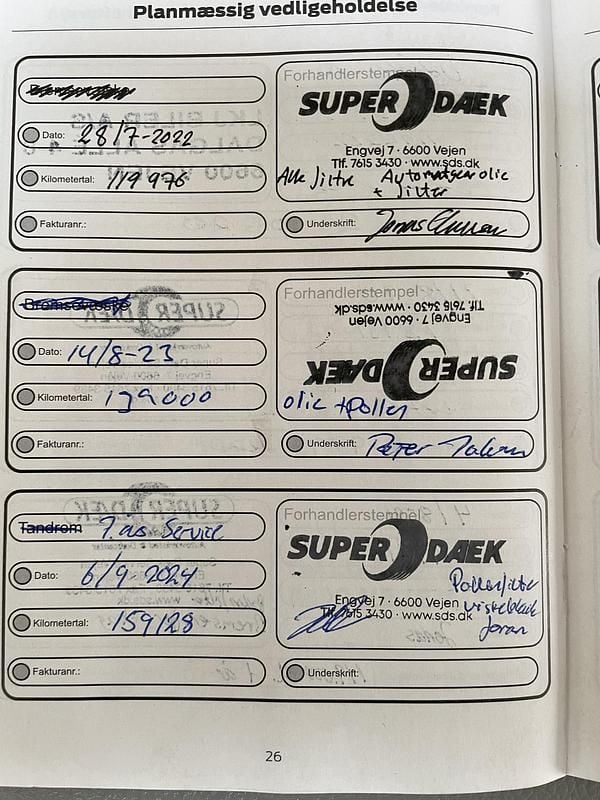 Planmæssig vedligeholdelse
Forhandlerstempel
SUPER DÆK
Dato: 28/7-2022
Engvej 7 · 6600 Vejen
Tlf. 7615 3430 · www.sds.dk
Kilometertal: 119976
Alle filtre Automatgear olie
+ filter
Fakturanr.:
Underskrift:
Bremsevæske
Forhandlerstempel
Tlf. 7615 3430 · www.sds.dk
Engvej 7 · 6600 Vejen
Dato: 14/8-23
SUPER DÆK
Kilometertal: 139000
olie + pollen
Fakturanr.:
Underskrift: Peter
Tandrem Service
Forhandlerstempel
SUPER DÆK
Dato: 6/9 2024
Pollenfilter
Engvej 7 · 6600 Vejen
viskeblade
Kilometertal: 159128
Tlf. 7615 3430 · www.sds.dk
foran
Fakturanr.:
Underskrift:
26